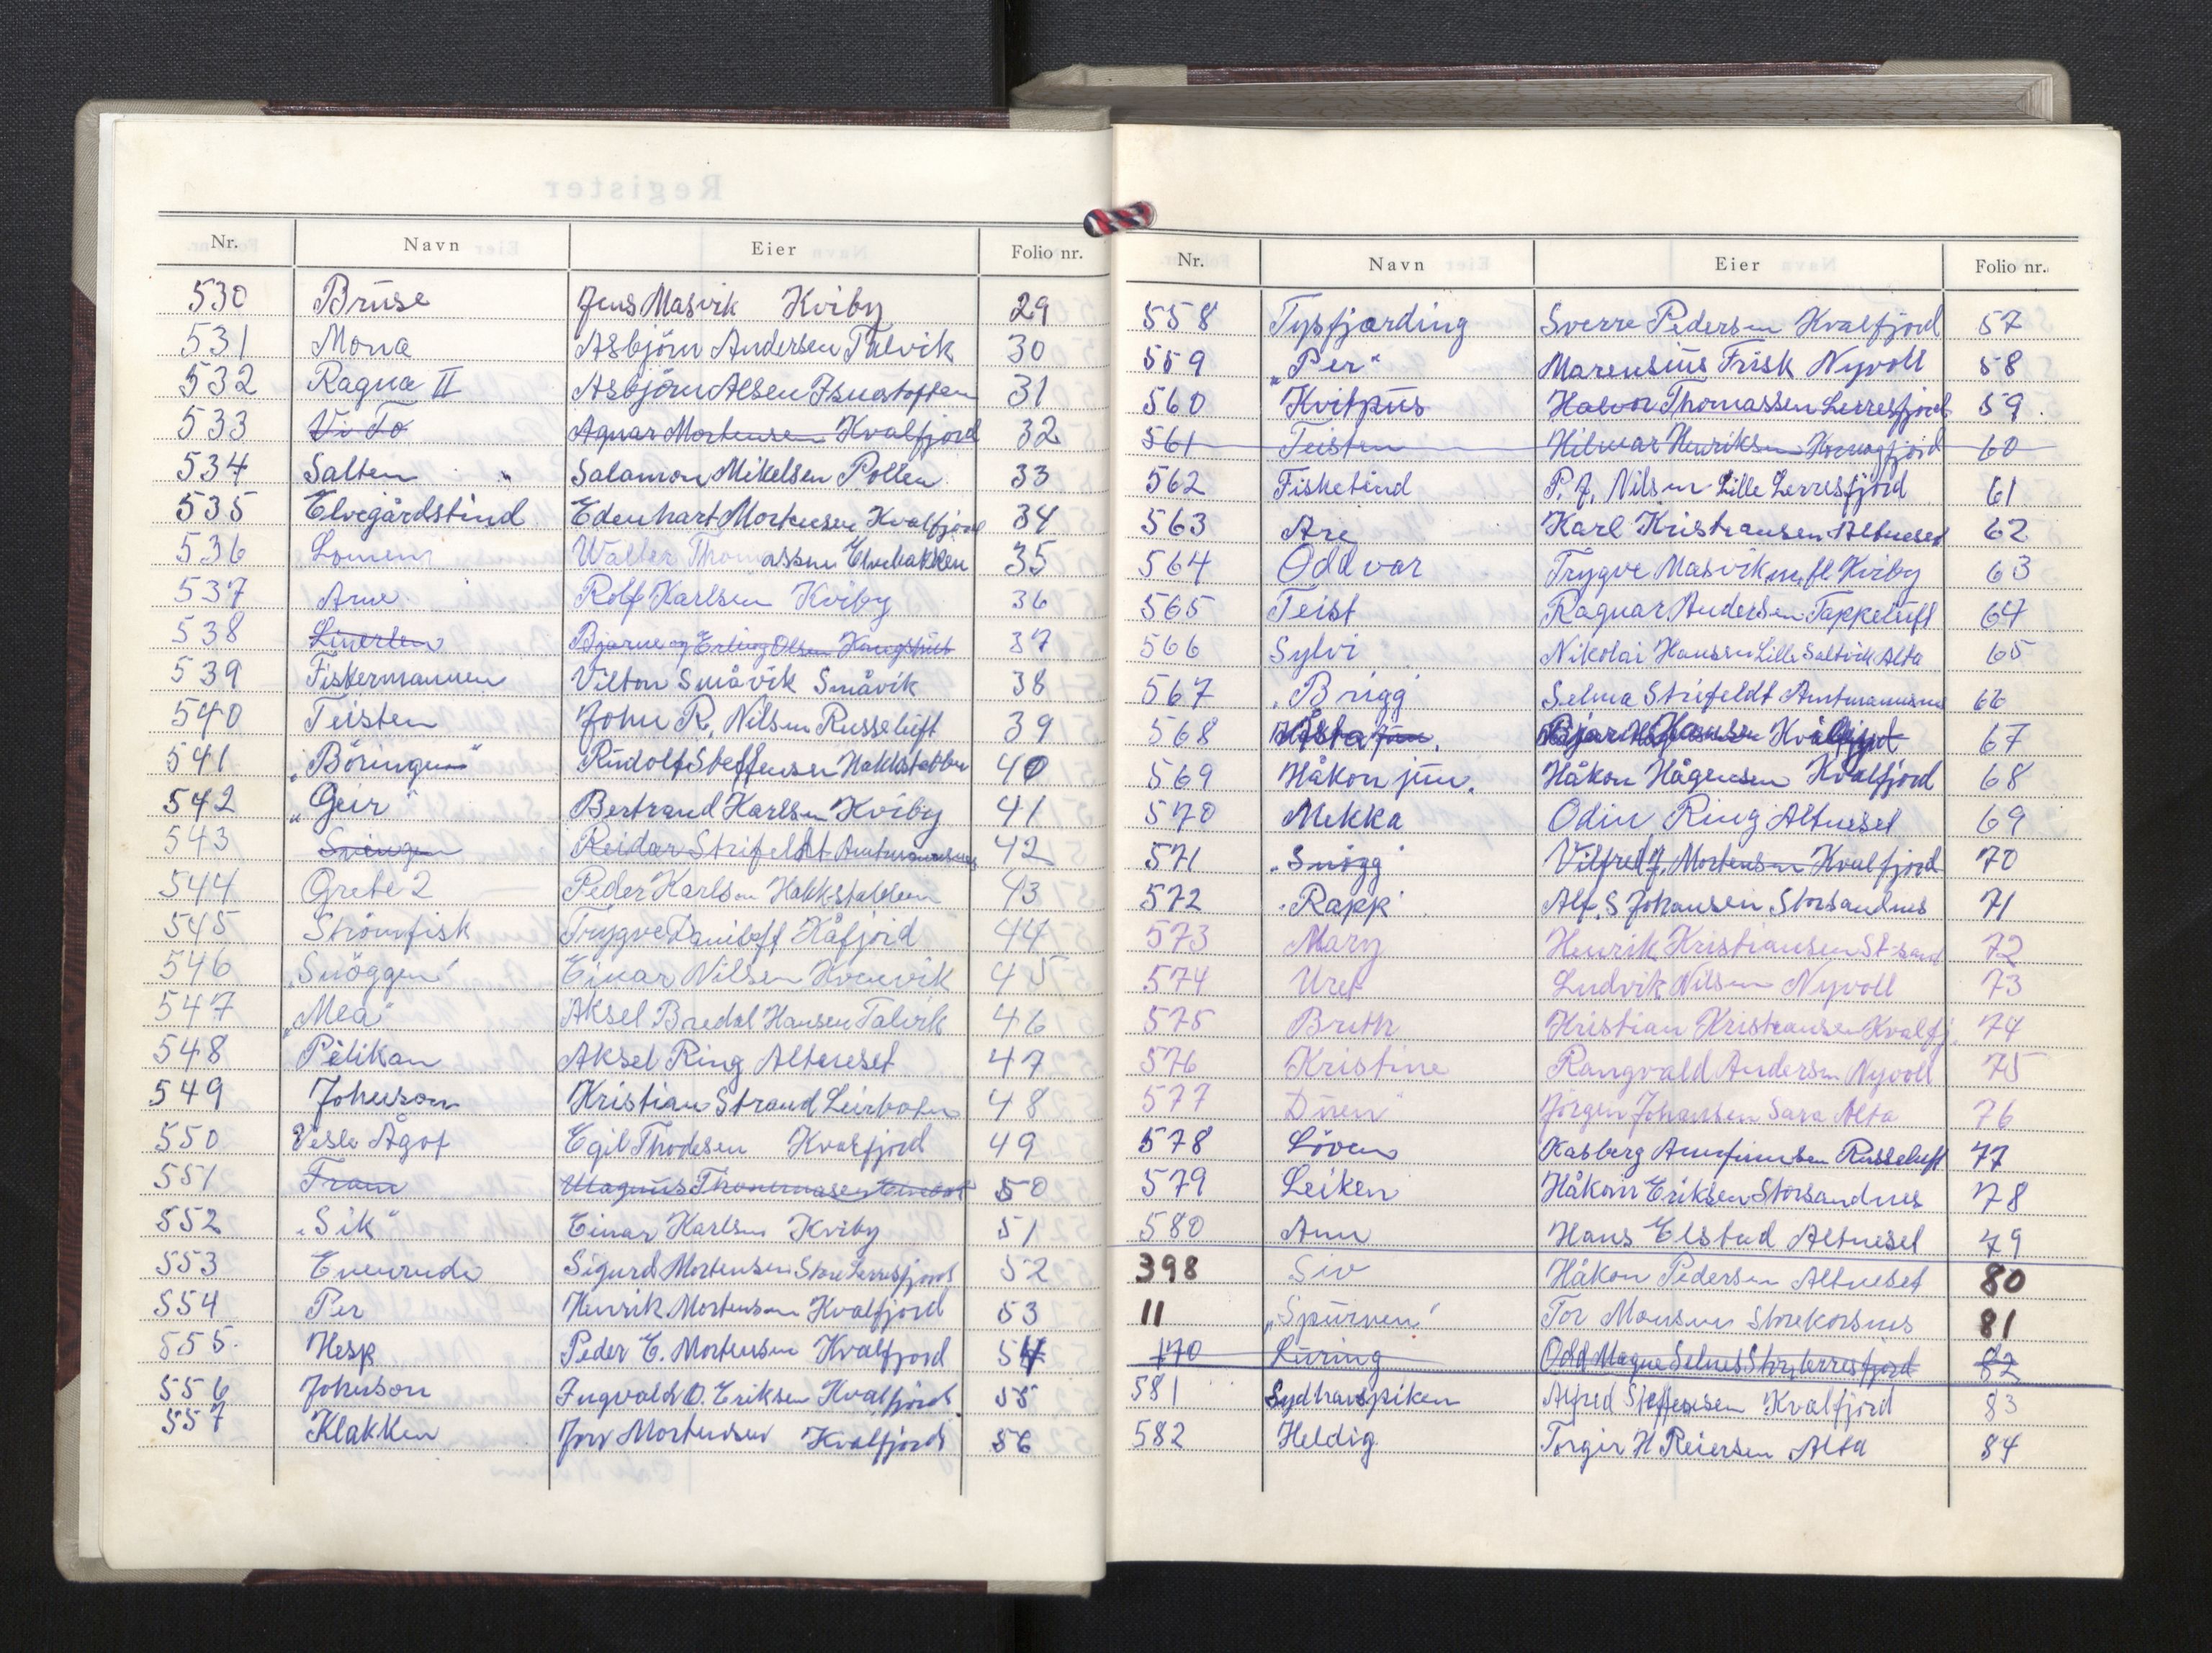 Nr. Navn Eier Folio nr.
530 Brüse Jens Masvik Kviby 29
531 Mona Asbjörn Andersen Talvik 30
532 Ragna II Asbjörn Olsen Isnestoften 31
533 Vi To Agnar Mortensen Kvalfjord 32
534 Salten Salamon Mikelsen Pollen 33
535 Elvegårdstind Edenhart Mortensen Kvalfjord 34
536 Lomen Walter Thomassen Elvebakken 35
537 Arne Rolf Karlsen Kviby 36
538 Linerlen Bjarne og Erling Olsen 37
539 Fiskermannen Vilton Småvik Småvik 38
540 Teisten John R. Nilsen Russeluft 39
541 „Böringen“ Rüdolf Steffensen Hakkstabben 40
542 „Geir“ Bertrand Karlsen Kviby 41
543 Svingen Reidar Strifeldt Amtmannsnes 42
544 Grete 2 Peder Karlsen Hakkstabben 43
545 Strömfisk Trygve Daniloff Kåfjord 44
546 „Snöggen“ Einar Nilsen Kvenvik 45
547 „Mea“ Aksel Bredal Hansen Talvik 46
548 Pelikan Aksel Ring Altneset 47
549 Johnson Kristian Strand Leirbotn 48
550 Vesle Ågot Egil Thodesen Kvalfjord 49
551 Fram Magnüs 50
552 „Sik“ Einar Karlsen Kviby 51
553 Enerude Sigurd Mortensen Store Lerresfjord 52
554 Per Henrik Mortensen Kvalfjord 53
555 Hesp Peder E. Mortensen Kvalfjord 54
556 Johnson Ingvald O. Eriksen Kvalfjord 55
557 Klakken Jörg Mortensen Kvalfjord 56
Nr. Navn Eier Folio nr.
558 Tysfjording Sverre Pedersen Kvalfjord 57
559 „Per“ Marensius Frisk Nyvoll 58
560 Kvitpüs Halvor Thomassen Lerresfjord 59
561 Teisten Hilmar Henriksen Komagfjord 60
562 Fisketind P. J. Nilsen Lille Lerresfjord 61
563 Are Karl Kristiansen Altneset 62
564 Oddvar Trygve Masvik m.fl. Kviby 63
565 Teist Ragnar Andersen Tappeluft 64
566 Sylvi Nikolai Hanssen Lille Saltvik Alta 65
567 „Brigg“ Selma Strifeldt Amtmannsnes 66
568 67
569 Håkon jün. Håkon Hågensen Kvalfjord 68
570 Mekka Odin Ring Altneset 69
571 „Snögg“ Vilfred J. Mortensen Kvalfjord 70
572 „Rapp“ Alf. S Johansen Storsandnes 71
573 Mary Henrik Kristiansen St-sand 72
574 Uret Ludvik Nilsen Nyvoll 73
575 Bruth Kristian Kristiansen Kvalfj. 74
576 Kristine Rangvald Andersen Nyvoll 75
577 Düen Jörgen Johansen Sara Alta 76
578 Löven Kasberg Arnfinnsen Russeluft 77
579 Leiken Håkon Eriksen Storsandnes 78
580 Ann Hans Elstad Altneset 79
398 Siv Håkon Pedersen Altneset 80
11 „Spürven“ Tor Monsen Storekorsnes 81
170 Luring Odd Magne Selnes Lerresfjord 82
581 Sydhavspiken Alfred Steffensen Kvalfjord 83
582 Heldig Torgir H Reiersen Alta 84